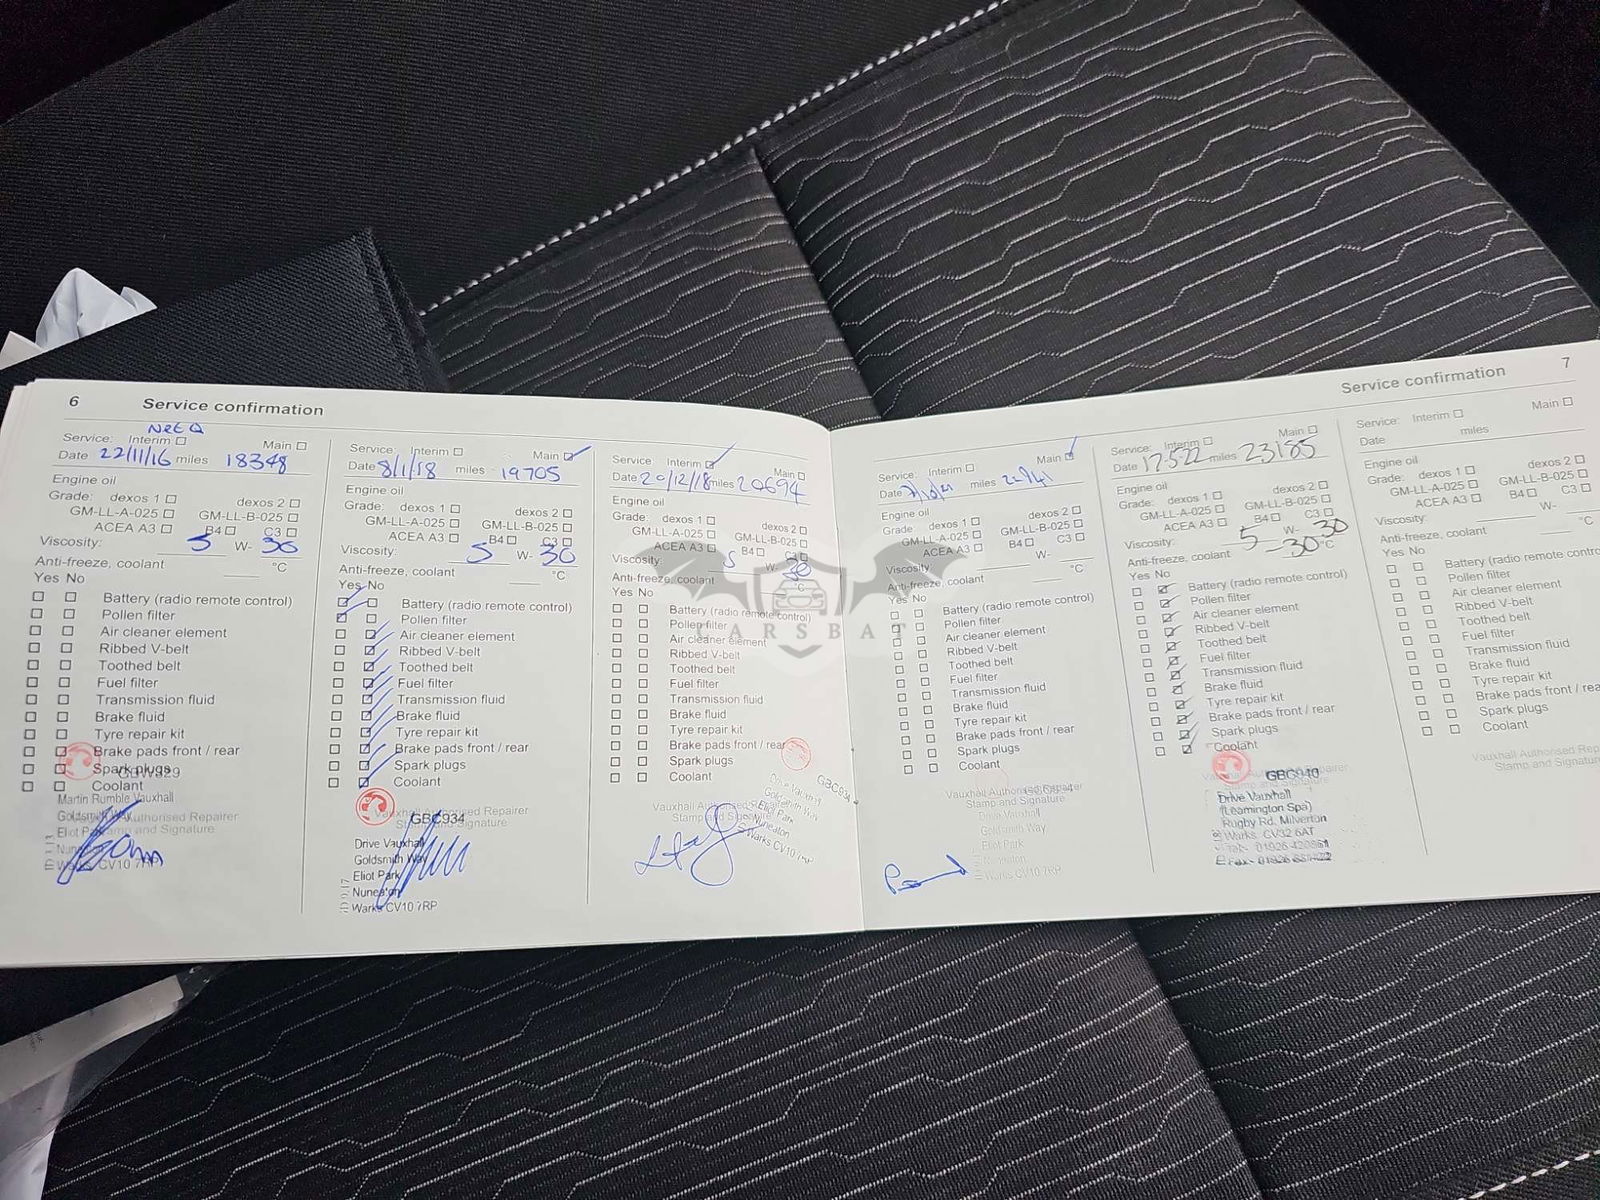 6 Service confirmation
Service: Interim Main
Date 22/11/16 miles 18348
Engine oil
Grade: dexos 1 dexos 2
GM-LL-A-025 GM-LL-B-025
ACEA A3 B4 C3
Viscosity: 5 W- 30
Anti-freeze, coolant °C
Yes No
Battery (radio remote control)
Pollen filter
Air cleaner element
Ribbed V-belt
Toothed belt
Fuel filter
Transmission fluid
Brake fluid
Tyre repair kit
Brake pads front / rear
Spark plugs
Coolant
Martin Rumble Vauxhall
Goldsmith Way
Authorised Repairer
Eliot Park
Stamp and Signature
Warks CV10 7RP
Service: Interim Main
Date 8/1/18 miles 19705
Engine oil
Grade: dexos 1 dexos 2
GM-LL-A-025 GM-LL-B-025
ACEA A3 B4 C3
Viscosity: 5 W- 30
Anti-freeze, coolant °C
Yes No
Battery (radio remote control)
Pollen filter
Air cleaner element
Ribbed V-belt
Toothed belt
Fuel filter
Transmission fluid
Brake fluid
Tyre repair kit
Brake pads front / rear
Spark plugs
Coolant
Vauxhall Authorised Repairer
Stamp and Signature
GBC934
Drive Vauxhall
Goldsmith Way
Eliot Park
Nuneaton
Warks CV10 7RP
Service: Interim Main
Date 20/12/18 miles 20694
Engine oil
Grade: dexos 1 dexos 2
GM-LL-A-025 GM-LL-B-025
ACEA A3 B4 C3
Viscosity: 5 W- 30
Anti-freeze, coolant °C
Yes No
Battery (radio remote control)
Pollen filter
Air cleaner element
Ribbed V-belt
Toothed belt
Fuel filter
Transmission fluid
Brake fluid
Tyre repair kit
Brake pads front / rear
Spark plugs
Coolant
Vauxhall Authorised Repairer
Stamp and Signature
GBC934
Drive Vauxhall
Goldsmith Way
Eliot Park
Nuneaton
Warks CV10 7RP
CARSBAT
Service confirmation 7
Service: Interim Main
Date miles
Engine oil
Grade: dexos 1 dexos 2
GM-LL-A-025 GM-LL-B-025
ACEA A3 B4 C3
Viscosity: W-
Anti-freeze, coolant °C
Yes No
Battery (radio remote control)
Pollen filter
Air cleaner element
Ribbed V-belt
Toothed belt
Fuel filter
Transmission fluid
Brake fluid
Tyre repair kit
Brake pads front / rear
Spark plugs
Coolant
Vauxhall Authorised Repairer
Stamp and Signature
Drive Vauxhall
Goldsmith Way
Eliot Park
Nuneaton
Warks CV10 7RP
Service: Interim Main
Date 17-5-22 miles 23185
Engine oil
Grade: dexos 1 dexos 2
GM-LL-A-025 GM-LL-B-025
ACEA A3 B4 C3
Viscosity: 5 W- 30
Anti-freeze, coolant -30 °C
Yes No
Battery (radio remote control)
Pollen filter
Air cleaner element
Ribbed V-belt
Toothed belt
Fuel filter
Transmission fluid
Brake fluid
Tyre repair kit
Brake pads front / rear
Spark plugs
Coolant
GBC940
Drive Vauxhall
(Leamington Spa)
Rugby Rd, Milverton
Warks. CV32 6AT
Service: Interim Main
Date miles
Engine oil
Grade: dexos 1 dexos 2
GM-LL-A-025 GM-LL-B-025
ACEA A3 B4 C3
Viscosity: W-
Anti-freeze, coolant °C
Yes No
Battery (radio remote contro
Pollen filter
Air cleaner element
Ribbed V-belt
Toothed belt
Fuel filter
Transmission fluid
Brake fluid
Tyre repair kit
Brake pads front / rea
Spark plugs
Coolant
Vauxhall Authorised Rep
Stamp and Signatur